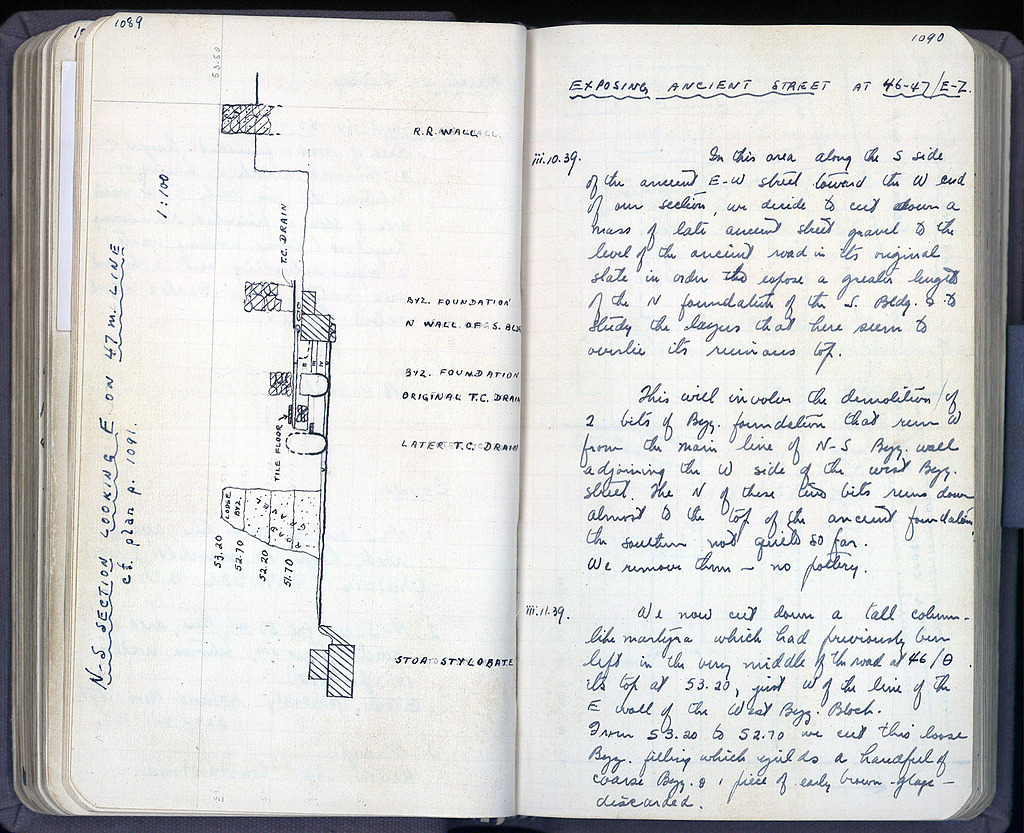 1089
53.50
R.R. WALL
1:100
T.C. DRAIN
BYZ. FOUNDATION
N WALL OF S. BLDG
BYZ. FOUNDATION
ORIGINAL T.C. DRAIN
LATER T.C. DRAIN
TILE FLOOR
LODGE
BYZ.
ROAD
53.20
52.70
52.20
51.70
STOA STYLOBATE
N-S SECTION LOOKING E ON 47 m. LINE
cf. plan p. 1091.
1090
EXPOSING ANCIENT STREET AT 46-47/E-Z.
iii.10.39. In this area along the S side
of the ancient E-W street toward the W end
of our section, we decide to cut down a
mass of late ancient street gravel to the
level of the ancient road in its original
state in order to expose a greater length
of the N foundation of the S. Bldg. & to
study the layers that here seem to
overlie its ruinous top.
This will involve the demolition of
2 bits of Byz. foundation that run W
from the main line of N-S Byz. wall
adjoining the W side of the west Byz.
street. The N of these two bits runs down
almost to the top of the ancient foundation
the southern not quite so far.
We remove them – no pottery.
iii.11.39. We now cut down a tall column-
like martyra which had previously been
left in the very middle of the road at 46/Θ
its top at 53.20, just W of the line of the
E wall of the West Byz. Block.
From 53.20 to 52.70 we cut this loose
Byz. filling which yields a handful of
coarse Byz. & 1 piece of early brown-glaze –
discarded.